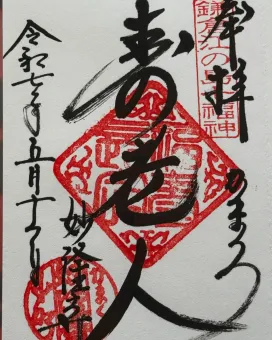 奉拝
かまくら
寿老人
妙隆寺
令和七年五月十六日
鎌倉江の島七福神